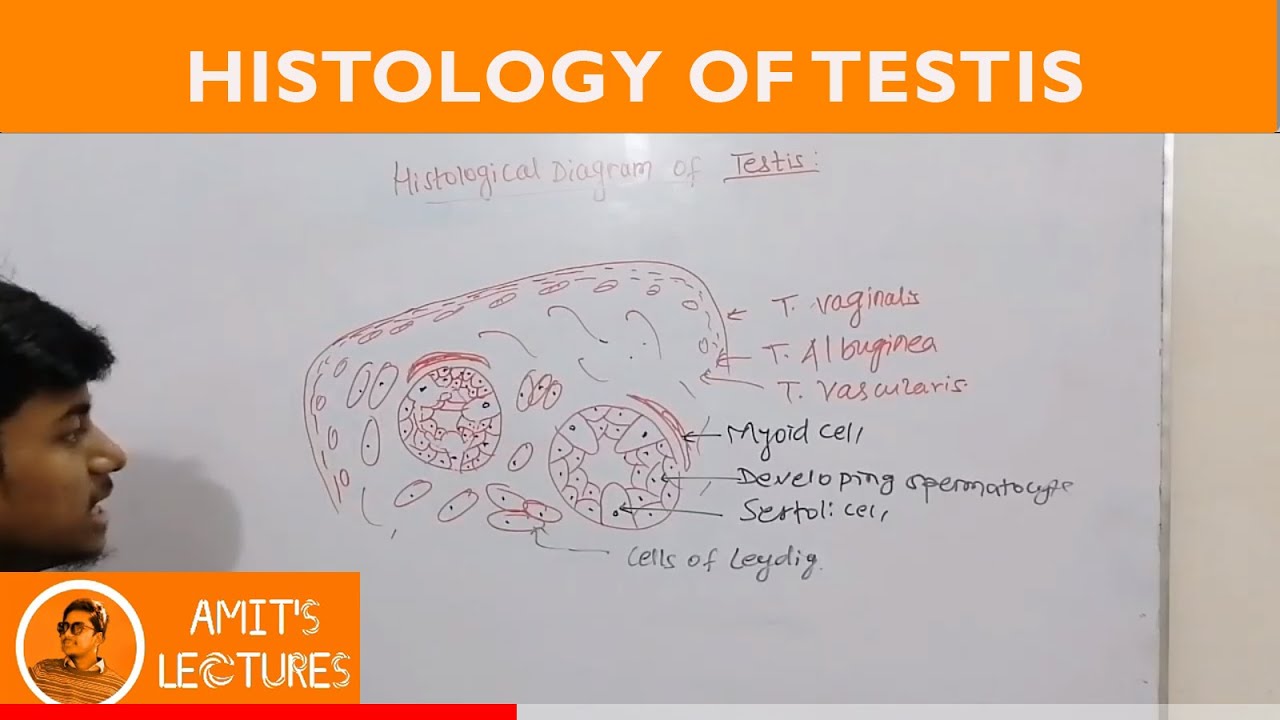 HISTOLOGY OF TESTIS
Histological Diagram of Testis:
T. vaginalis
T. Albuginea
T. vascularis.
Myoid cell
Developing spermatocyte
Sertoli cell
cells of Leydig.
AMIT'S
LECTURES